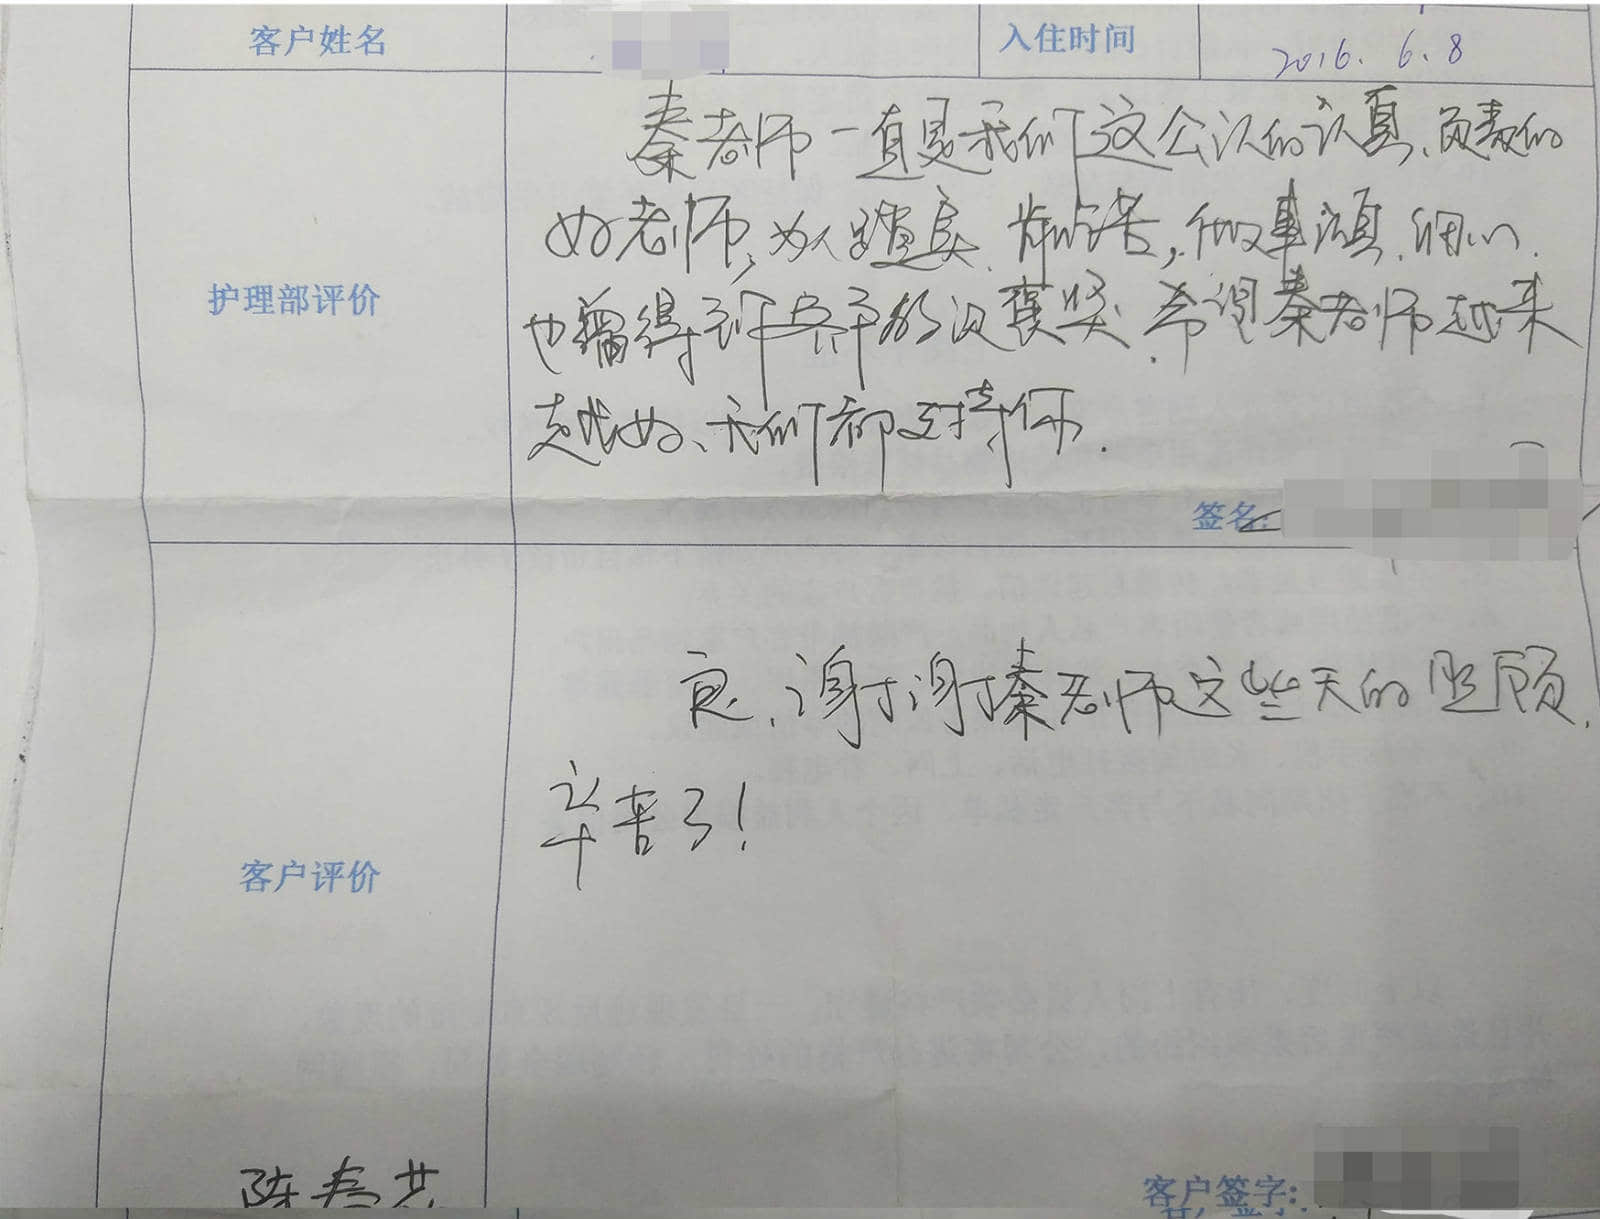 客户姓名
入住时间 2016.6.8
护理部评价
秦老师一直是我们这公认的认真、负责的
好老师,为人踏实、肯吃苦,做事认真、细心、
也赢得了许多客户的认可. 希望秦老师越来
越好、我们都支持你.
签名:
客户评价
良、谢谢秦老师这些天的照顾,
辛苦了!
客户签字: